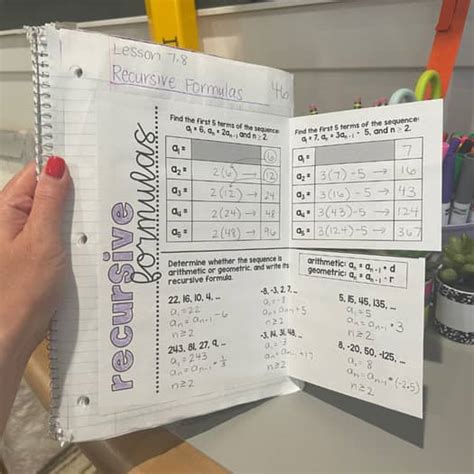 Lesson 7.8
Recursive Formulas 46
recursive
formulas
Find the first 5 terms of the sequence:
a₁ = 6, aₙ = 2aₙ₋₁, and n ≥ 2.
a₁ = 6
a₂ = 2(6) → 12
a₃ = 2(12) → 24
a₄ = 2(24) → 48
a₅ = 2(48) → 96
Find the first 5 terms of the sequence:
a₁ = 7, aₙ = 3aₙ₋₁ - 5, and n ≥ 2.
a₁ = 7
a₂ = 3(7)-5 → 16
a₃ = 3(16)-5 → 43
a₄ = 3(43)-5 → 124
a₅ = 3(124)-5 → 367
Determine whether the sequence is
arithmetic or geometric, and write its
recursive formula.
arithmetic: aₙ = aₙ₋₁ + d
geometric: aₙ = aₙ₋₁ · r
22, 16, 10, 4, ...
a₁ = 22
aₙ = aₙ₋₁ - 6
n ≥ 2
-8, -3, 2, 7, ...
a₁ = -8
aₙ = aₙ₋₁ + 5
n ≥ 2
5, 15, 45, 135, ...
a₁ = 5
aₙ = aₙ₋₁ • 3
n ≥ 2
243, 81, 27, 9, ...
a₁ = 243
aₙ = aₙ₋₁ • 1/3
n ≥ 2
-3, 14, 31, 48, ...
a₁ = -3
aₙ = aₙ₋₁ + 17
n ≥ 2
8, -20, 50, -125, ...
a₁ = 8
aₙ = aₙ₋₁ • (-2.5)
n ≥ 2